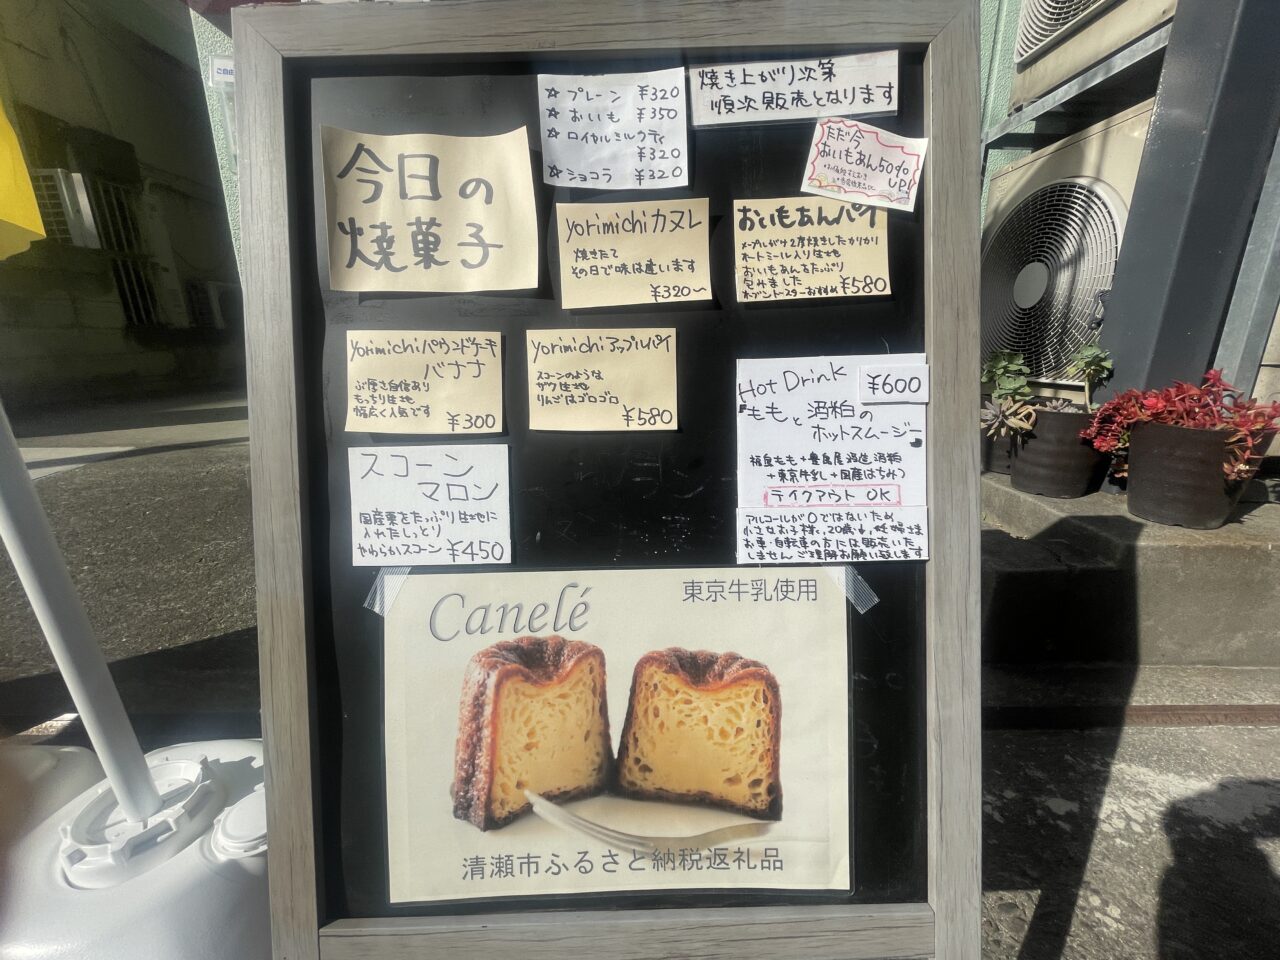 焼き上がり次第
順次販売となります
☆ プレーン ¥320
☆ おいも ¥350
☆ ロイヤルミルクティ
¥320
☆ ショコラ ¥320
ただ今
おいもあん50%
UP!
今日の
焼菓子
yorimichiカヌレ
焼きたて
その日で味は違います
¥320〜
おいもあんパイ
メープルがけ2度焼きしたカリカリ
オートミール入り生地
おいもあんをたっぷり
包みました
オーブントースターおすすめ ¥580
yorimichiパウンドケーキ
バナナ
ぶ厚さ自信あり
もっちり生地
幅広く人気です
¥300
yorimichiアップルパイ
スコーンのような
ザク生地
りんごはゴロゴロ
¥580
Hot Drink ¥600
『ももと酒粕の
ホットスムージー』
福島もも+豊島屋酒造酒粕
+東京牛乳+国産はちみつ
テイクアウト OK
アルコールが0ではないため
小さなお子様、20歳↓、妊婦さま
お車・自転車の方には販売いた
しません ご理解お願い致します
スコーン
マロン
国産栗をたっぷり生地に
入れたしっとり
やわらかスコーン ¥450
Canelé
東京牛乳使用
清瀬市ふるさと納税返礼品